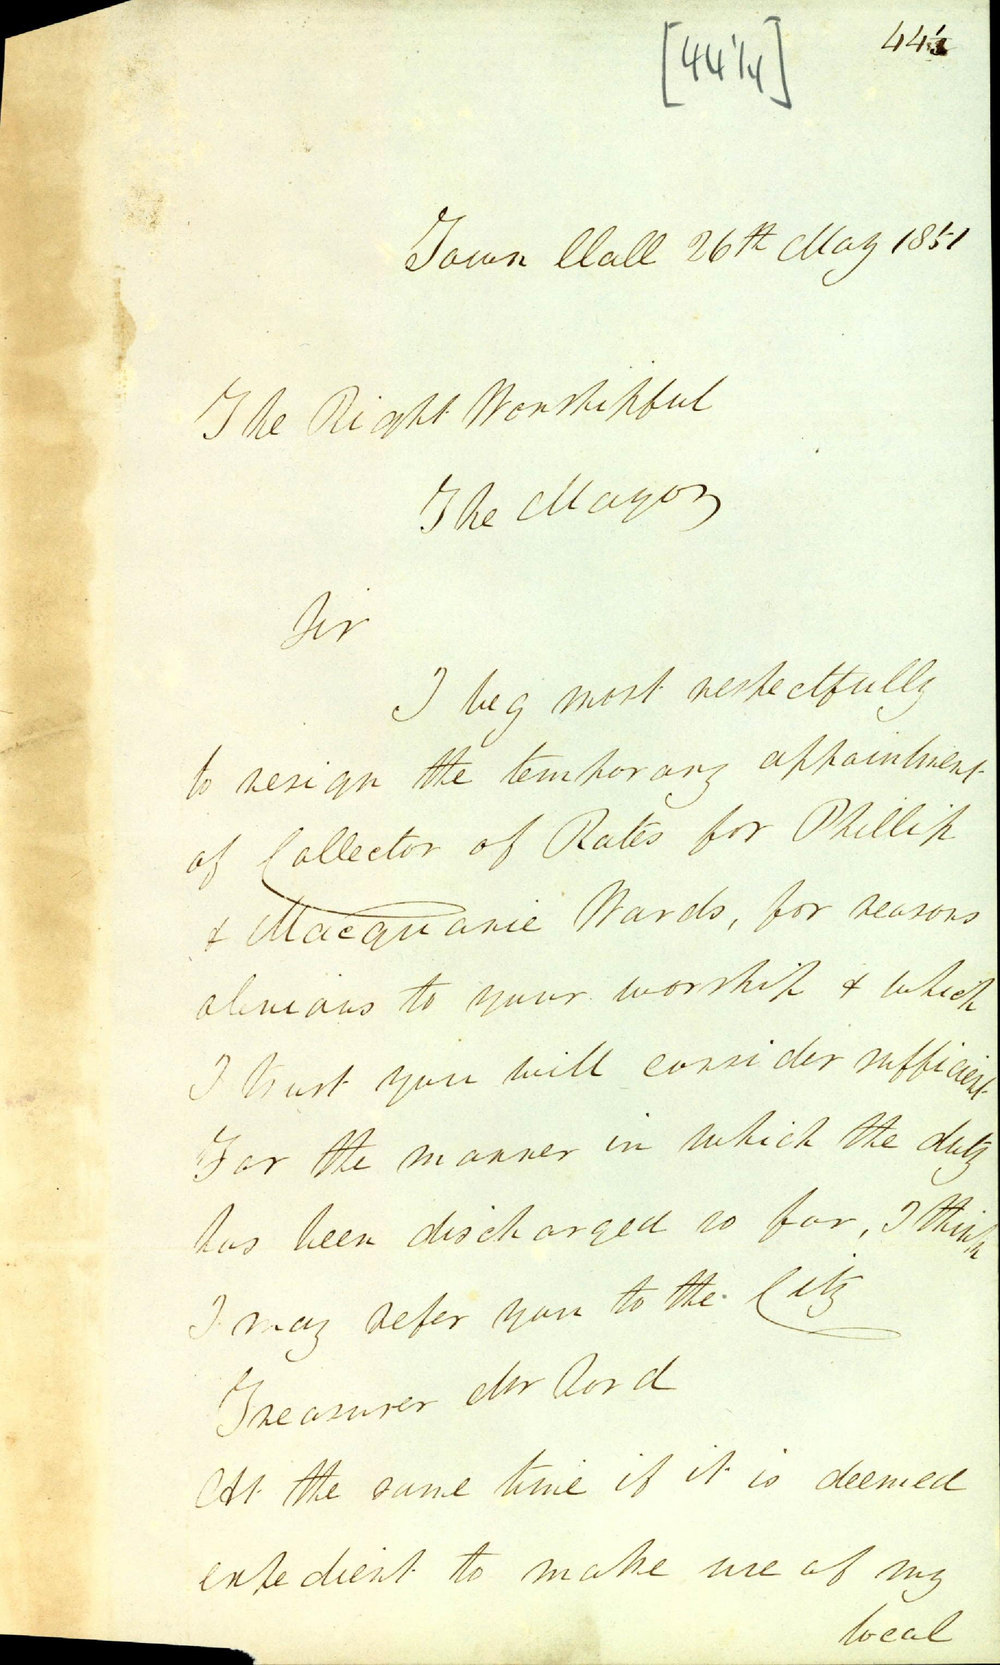 [44 1/4]
Town Hall 26th May 1851
The Right Worshipful
The Mayor
Sir
I beg most respectfully
to resign the temporary appointment
of Collector of Rates for Phillip
& Macquarie Wards, for reasons
obvious to your worship & which
I trust you will consider sufficient
For the manner in which the duty
has been discharged so far, I think
I may refer you to the City
Treasurer Mr Rord
At the same time if it is deemed
expedient to make use of my
local